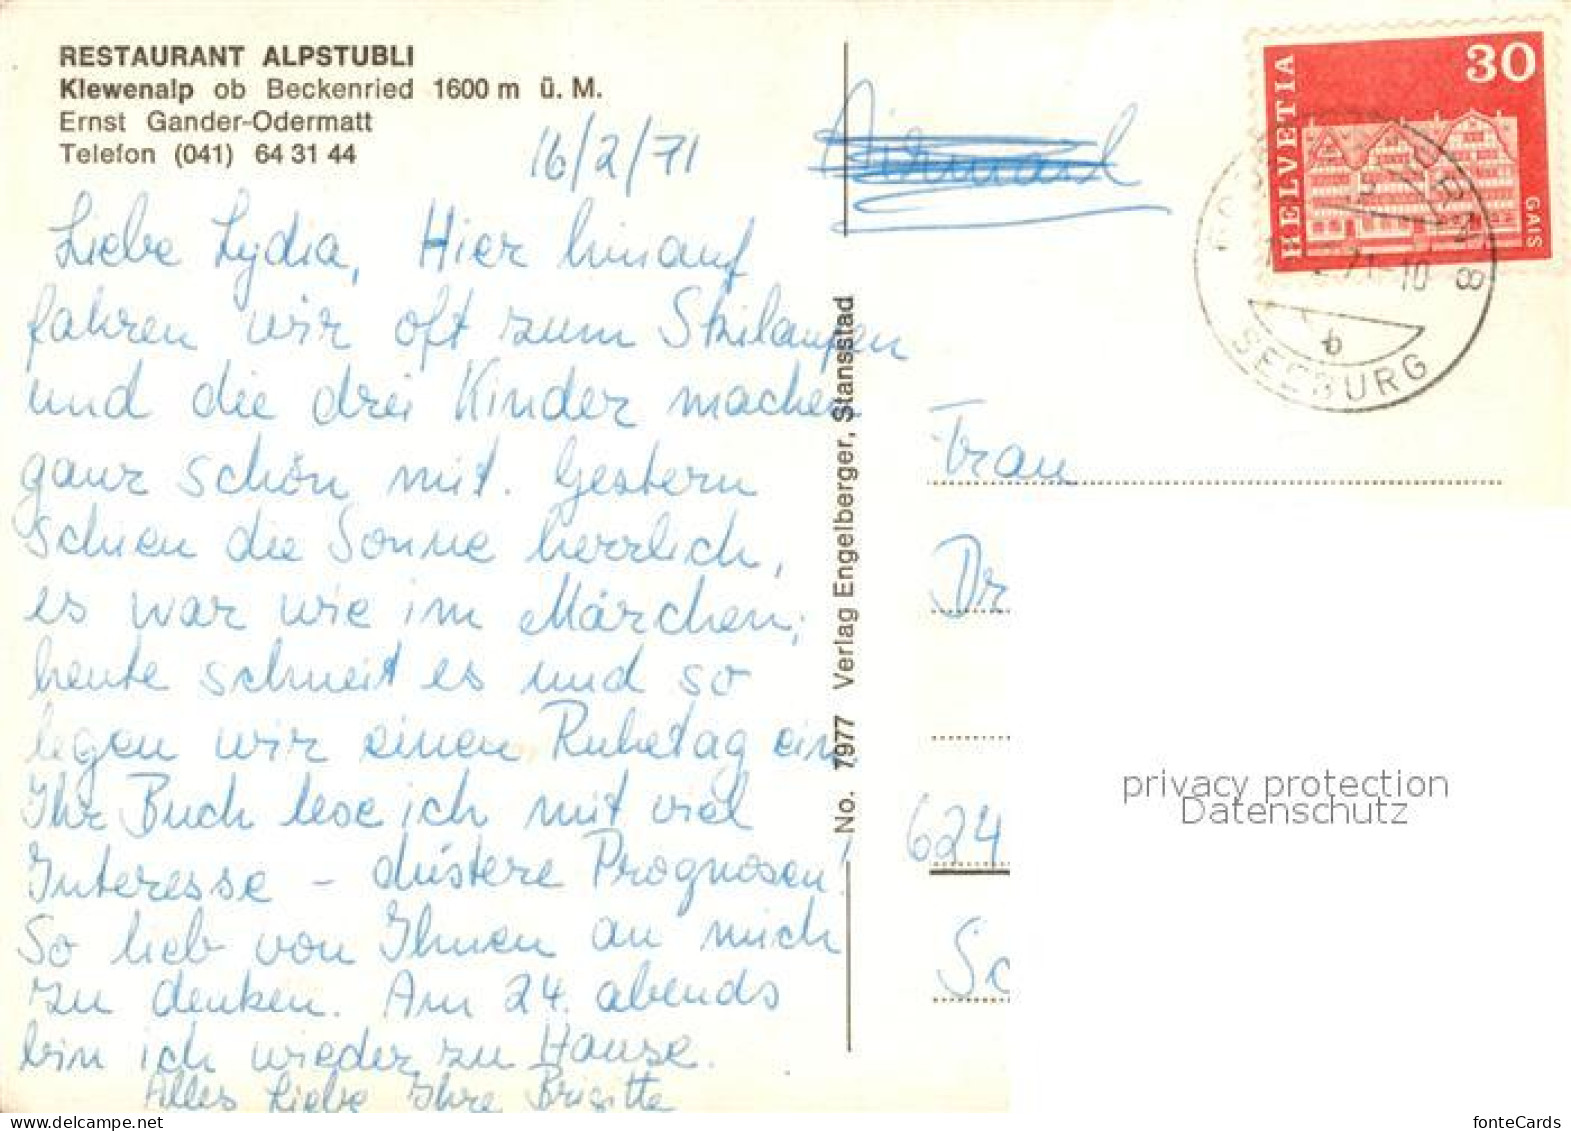 RESTAURANT ALPSTUBLI
Klewenalp ob Beckenried 1600 m ü. M.
Ernst Gander-Odermatt
Telefon (041) 64 31 44
16/2/71
Liebe Lydia, Hier hinauf
fahren wir oft zum Skilaufen
und die drei Kinder machen
ganz schön mit. Gestern
schien die Sonne herrlich,
es war wie im Märchen;
heute schneit es und so
legen wir einen Ruhetag ein.
Ihr Buch lese ich mit viel
Interesse – düstere Prognosen!
So lieb von Ihnen an mich
zu denken. Am 24. abends
bin ich wieder zu Hause.
Alles Liebe Ihre Brigitte
No. 7977 Verlag Engelberger, Stansstad
HELVETIA
30
GAIS
71-10
8
b
SEEBURG
Frau
Dr
624
Sc
privacy protection
Datenschutz
fonteCards